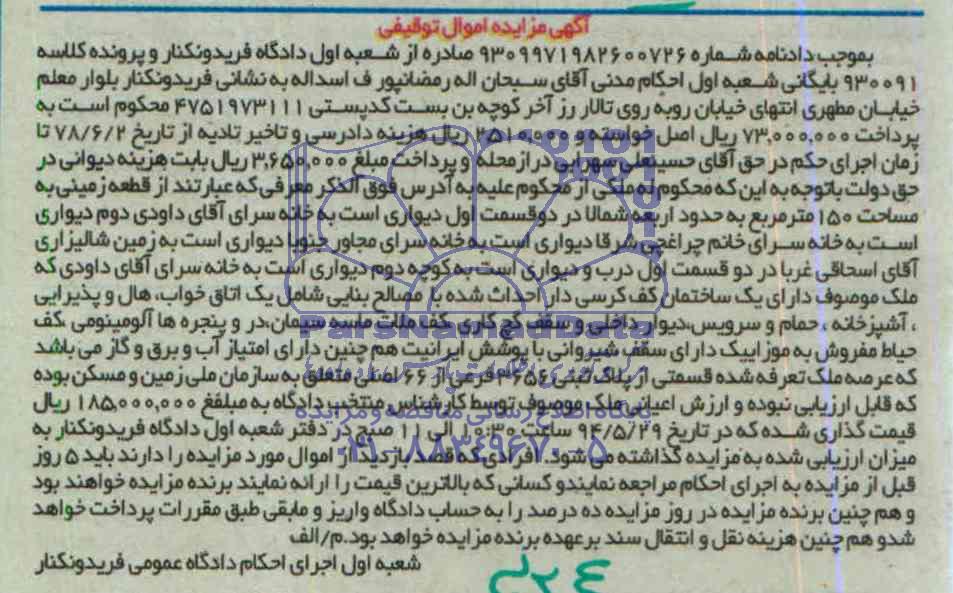 آگهی مزایده اموال توقیفی
بموجب دادنامه شماره ۹۳۰۹۹۷۱۹۸۲۶۰۰۷۲۶ صادره از شعبه اول دادگاه فریدونکنار و پرونده کلاسه
۹۳۰۰۹۱ بایگانی شعبه اول احکام مدنی آقای سبحان اله رمضانپور ف اسداله به نشانی فریدونکنار بلوار معلم
خیابان مطهری انتهای خیابان روبه روی تالار رز آخر کوچه بن بست کدپستی ۴۷۵۱۹۷۳۱۱۱ محکوم است به
پرداخت ۷۳,۰۰۰,۰۰۰ ریال اصل خواسته و ۲۵۱۰,۰۰۰ ریال هزینه دادرسی و تاخیر تادیه از تاریخ ۷۸/۶/۲ تا
زمان اجرای حکم در حق آقای حسینعلی سهرابی درازمحله و پرداخت مبلغ ۳,۶۵۰,۰۰۰ ریال بابت هزینه دیوانی در
حق دولت باتوجه به این که محکوم له ملکی از محکوم علیه به آدرس فوق الذکر معرفی که عبارتند از قطعه زمینی به
مساحت ۱۵۰ مترمربع به حدود اربعه شمالا در دوقسمت اول دیواری است به خانه سرای آقای داودی دوم دیواری
است به خانه سرای خانم چراغچی شرقا دیواری است به خانه سرای مجاور جنوبا دیواری است به زمین شالیزاری
آقای اسحاقی غربا در دو قسمت اول درب و دیواری است به کوچه دوم دیواری است به خانه سرای آقای داودی که
ملک موصوف دارای یک ساختمان کف کرسی دار احداث شده با مصالح بنایی شامل یک اتاق خواب، هال و پذیرایی
، آشپزخانه ، حمام و سرویس،دیوار داخلی و سقف گچ کاری ،کف ملات ماسه سیمان،در و پنجره ها آلومینومی ،کف
حیاط مفروش به موزاییک دارای سقف شیروانی با پوشش ایرانیت هم چنین دارای امتیاز آب و برق و گاز می باشد
که عرصه ملک تعرفه شده قسمتی از پلاک ثبتی ۳۶۵۴ فرعی از ۶۶ اصلی متعلق به سازمان ملی زمین و مسکن بوده
که قابل ارزیابی نبوده و ارزش اعیانی ملک موصوف توسط کارشناس منتخب دادگاه به مبلفغ ۱۸۵,۰۰۰,۰۰۰ ریال
قیمت گذاری شده که در تاریخ ۹۴/۵/۲۹ ساعت ۱۰:۳۰ الی ۱۱ صبح در دفتر شعبه اول دادگاه فریدونکنار به
میزان ارزیابی شده به مزایده گذاشته می شود. افرادی که قصد بازدید از اموال مورد مزایده را دارند باید ۵ روز
قبل از مزایده به اجرای احکام مراجعه نمایندو کسانی که بالاترین قیمت را ارائه نمایند برنده مزایده خواهند بود
و هم چنین برنده مزایده در روز مزایده ده درصد را به حساب دادگاه واریز و مابقی طبق مقررات پرداخت خواهد
شدو هم چنین هزینه نقل و انتقال سند برعهده برنده مزایده خواهد بود.م/الف
شعبه اول اجرای احکام دادگاه عمومی فریدونکنار
ParsNamadData
پایگاه اطلاع رسانی مناقصه و مزایده
۰۲۱-۸۸۳۴۹۶۷۰-۵